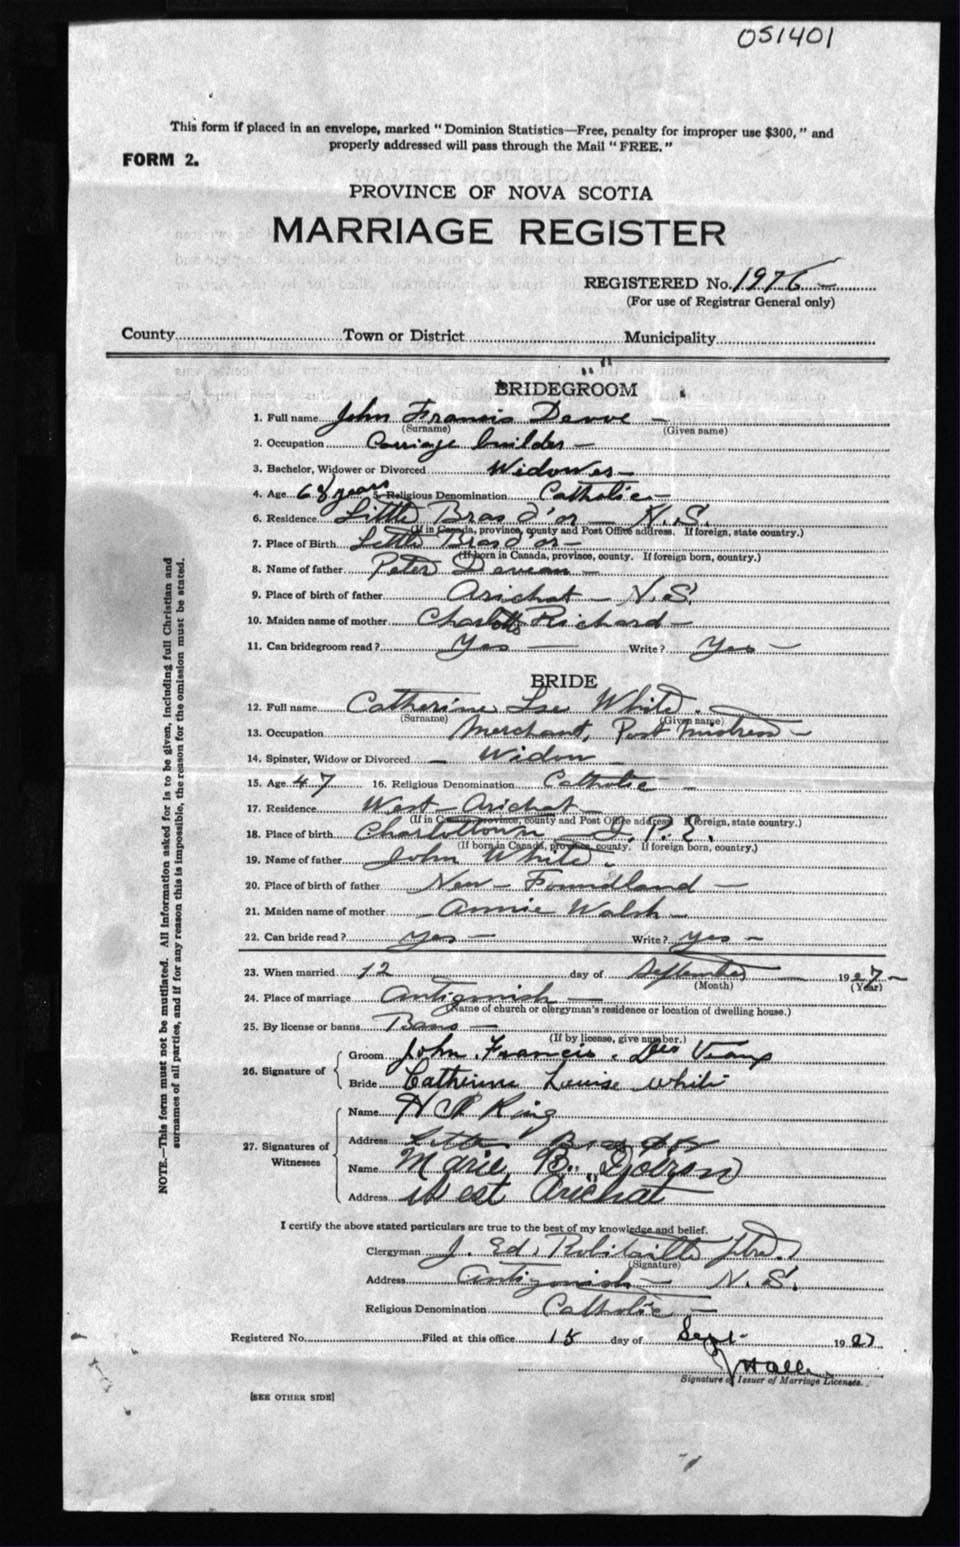 051401
This form if placed in an envelope, marked "Dominion Statistics—Free, penalty for improper use $300," and
properly addressed will pass through the Mail "FREE."
FORM 2.
PROVINCE OF NOVA SCOTIA
MARRIAGE REGISTER
REGISTERED No. 1976
(For use of Registrar General only)
County Town or District Municipality
BRIDEGROOM
1. Full name John Francis
(Surname) (Given name)
2. Occupation Carriage builder
3. Bachelor, Widower or Divorced Widower
4. Age 68 years 5. Religious Denomination Catholic
6. Residence Little Bras d'or N.S.
(If in Canada, province, county and Post Office address. If foreign, state country.)
7. Place of Birth Little Bras d'or
(If born in Canada, province, county. If foreign born, country.)
8. Name of father Peter
9. Place of birth of father Arichat N.S.
10. Maiden name of mother Charlotte Richard
11. Can bridegroom read? Yes Write? Yes
BRIDE
12. Full name Catherine White
(Surname) (Given name)
13. Occupation Merchant, Post mistress
14. Spinster, Widow or Divorced Widow
15. Age 47 16. Religious Denomination Catholic
17. Residence West Arichat
(If in Canada, province, county and Post Office address. If foreign, state country.)
18. Place of birth Charlottown
(If born in Canada, province, county. If foreign born, country.)
19. Name of father John White
20. Place of birth of father New-Foundland
21. Maiden name of mother Annie Walsh
22. Can bride read? yes Write? yes
23. When married 12 day of September 1927
(Month) (Year)
24. Place of marriage Antigonish
(Name of church or clergyman's residence or location of dwelling house.)
25. By license or banns Bans
(If by license, give number.)
26. Signature of
Groom John Francis. Des Veaux
Bride Catherine Louise White
27. Signatures of
Witnesses
Name King
Address Little Bras d'or
Name Marie B.
Address West Arichat
I certify the above stated particulars are true to the best of my knowledge and belief.
Clergyman J. Ed. Robitaille
(Signature)
Address Antigonish N.S.
Religious Denomination Catholic
Registered No. Filed at this office 15 day of Sept 1927
Signature of Issuer of Marriage Licenses.
[SEE OTHER SIDE]
NOTE.—This form must not be mutilated. All information asked for is to be given, including full Christian and
surnames of all parties, and if for any reason this is impossible, the reason for the omission must be stated.